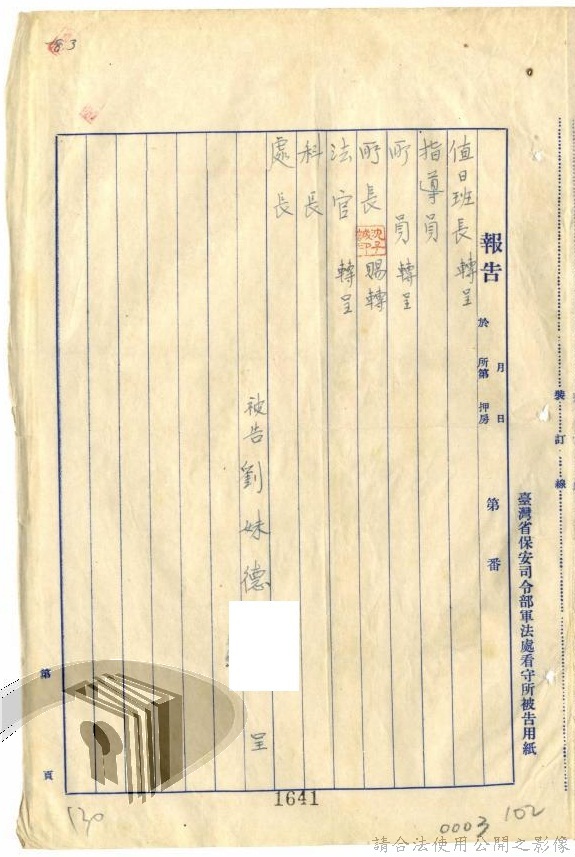 臺灣省保安司令部軍法處看守所被告用紙
裝訂線
報告
於
月日
所押
第房
第番
值日班長轉呈
指導員
所員轉呈
所長賜轉
法官轉呈
科長
處長
被告劉妹德
呈
第頁
1641
130
0003
102
請合法使用公開之影像